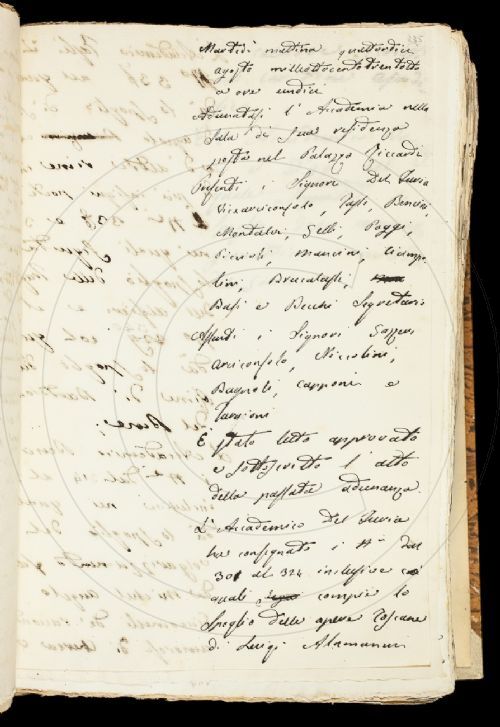 Martedì mattina quattordici
agosto milleottocentotrentotto
a ore undici
Adunatasi l'Accademia nella
Sala di sua residenza
posta nel Palazzo Riccardi
Presenti i Signori Del Furia
Vicearciconsolo, Tassi, Bencini,
Montalvi, Gelli, Poggi,
Picciuoli, Mancini, Ciampo-
lini, Brucalassi,
Basi e Becchi Segretario
Assenti i Signori Sazzeri
arciconsolo, Niccolini,
Bagnoli, Capponi e
Targioni
È stato letto approvato
e sottoscritto l'atto
della passata adunanza.
L'Accademico Del Furia
ha consegnato i N.i dal
301 al 324 inclusive co'
quali compie lo
spoglio delle opere Toscane
di Luigi Alamanni